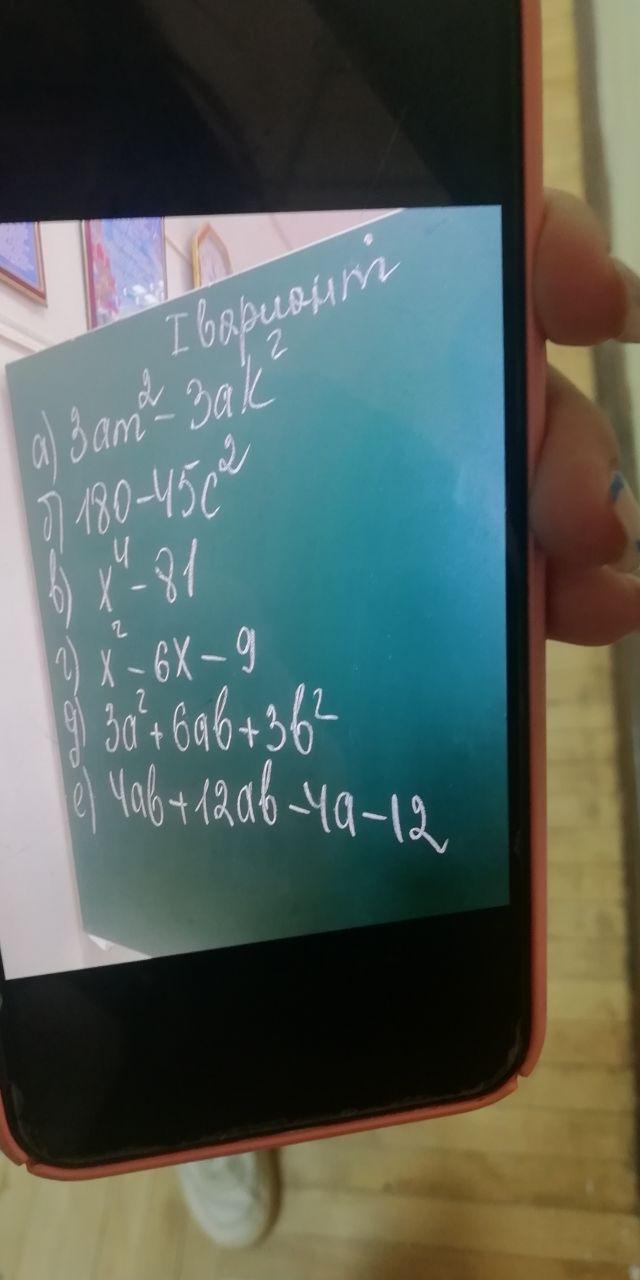 I вариант
а) 3am² - 3ak²
б) 180 - 45c²
в) x⁴ - 81
г) x² - 6x - 9
д) 3a² + 6ab + 3b²
е) 4ab + 12ab - 4a - 12